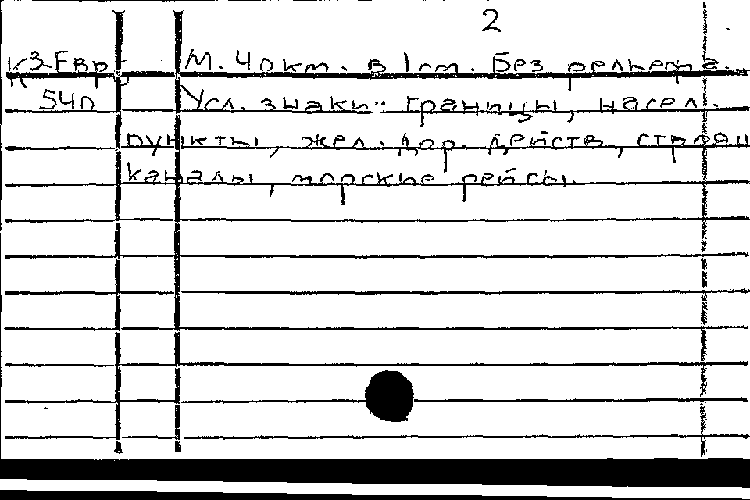 2
К3-Евр М. 40км. в 1см. Без рельефа.
54п Усл. знаки: границы, насел.
пункты, жел. дор. действ, строящ
каналы, морские рейсы.